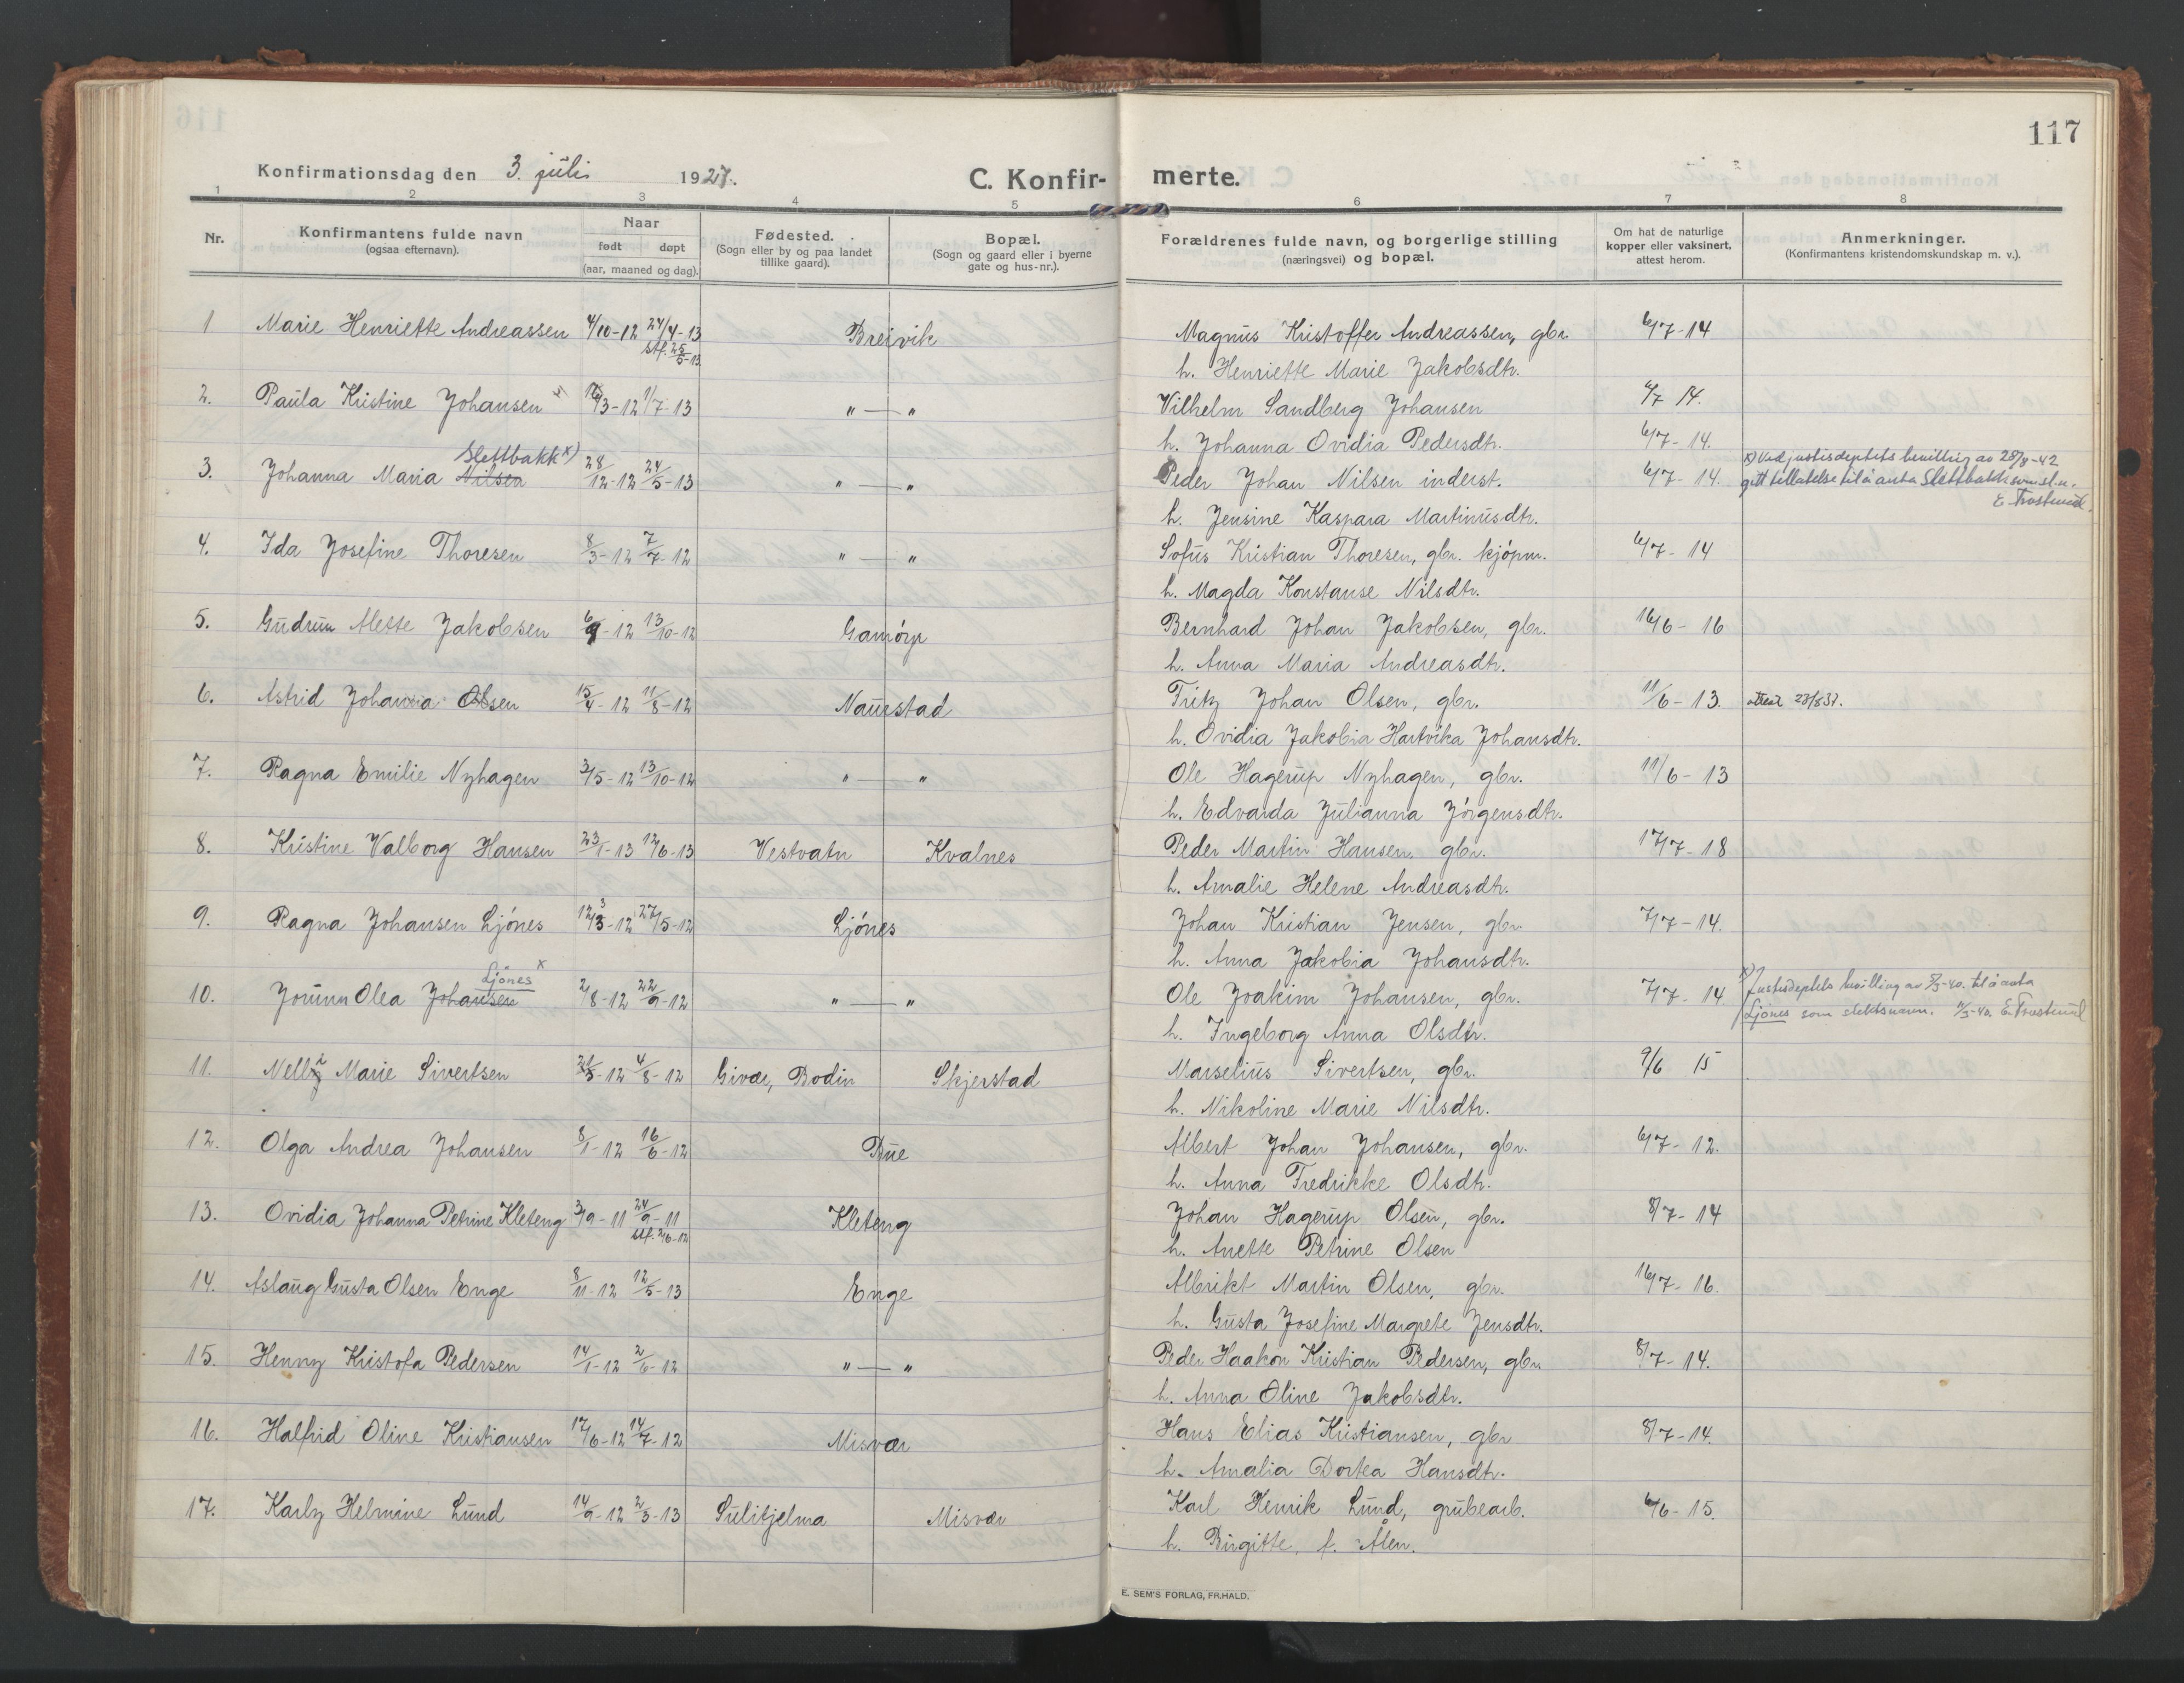 117
Konfirmationsdag den 3. juli 1927. C. Konfir- merte.
1 2 3 4 5 6 7 8
Nr. Konfirmantens fulde navn (ogsaa efternavn). Naar født døpt (aar, maaned og dag). Fødested. (Sogn eller by og paa landet tillike gaard). Bopæl. (Sogn og gaard eller i byerne gate og hus-nr.). Forældrenes fulde navn, og borgerlige stilling (næringsvei) og bopæl. Om hat de naturlige kopper eller vaksinert, attest herom. Anmerkninger. (Konfirmantens kristendomskundskap m. v.).
1 Marie Henriette Andreassen 4/10-12 24/4-13 Breivik Magnus Kristoffer Andreassen, gbr. 6/7-14
stf. 25/5-13 h. Henriette Marie Jakobsdtr.
2. Paula Kristine Johansen 1/7-13 "—" Vilhelm Sandberg Johansen 6/7 14.
h. Johanna Ovidia Pedersdtr. 6/7-14.
Slettbakk x)
3. Johanna Maria Nilsen 28/12-12 24/5-13 "—" Peder Johan Nilsen inderst. 6/7-14. x) Ved justisdeptets bevilling av 28/8-42
gitt tillatelse til å anta Slettbakk som sl.n.
E. Trostmid.
h. Jensine Kaspara Martinusdtr.
4. Ida Josefine Thoresen 8/3-12 7/7-12 "—" Sofus Kristian Thoresen, gbr. kjøpm. 6/7-14
h. Magda Konstanse Nilsdtr.
5. Gudrun Alette Jakobsen 6/9-12 13/10-12 Gamörp Bernhard Johan Jakobsen, gbr. 16/6-16
h. Anna Maria Andreasdtr.
6. Astrid Johanna Olsen 15/4-12 11/8-12 Naurstad Fritz Johan Olsen, gbr. 11/6-13. attest 23/8 37.
h. Ovidia Jakobia Hartvika Johansdtr.
7. Ragna Emilie Nyhagen 3/5-12 13/10-12 "—" Ole Hagerup Nyhagen, gbr. 11/6-13
h. Edvarda Julianna Jörgensdtr.
8. Kristine Valborg Hansen 23/1-13 12/6-13 Vestvatn Kvalnes Peder Martin Hansen gbr. 17/7-18
h. Amalie Helene Andreasdtr.
9. Ragna Johansen Ljönes 12/3-12 27/5-12 Ljönes Johan Kristian Jensen, gbr. 7/7-14.
h. Anna Jakobia Johansdtr.
Ljönes x
10. Jorunn Olea Johansen 2/8-12 22/9-12 "—" Ole Joakim Johansen, gbr. 7/7-14. x) Justisdeptets bevilling av 5/3-40. til å anta
Ljönes som slektsnavn. E. Trostmid
h. Ingeborg Anna Olsdtr.
11. Nelly Marie Sivertsen 4/8-12 Givær, Bodin Skjerstad Marselius Sivertsen, gbr. 9/6 15
h. Nikoline Marie Nilsdtr.
12. Olga Andrea Johansen 8/1-12 16/6-12 Bue Albert Johan Johansen, gbr. 6/7-12.
h. Anna Fredrikke Olsdtr.
13. Ovidia Johanna Petrine Kleteng 3/9-11 24/9-11 Kleteng Johan Hagerup Olsen, gbr. 8/7-14
stf. 2/6-12 h. Anette Petrine Olsen
14. Aslaug Gusta Olsen Enge 8/11-12 12/5-13 Enge Albrikt Martin Olsen, gbr. 16/7-16.
h. Gusta Josefine Margrete Jensdtr.
15. Henny Kristofa Pedersen 14/1-12 2/6-12 "—" Peder Haakon Kristian Pedersen, gbr. 8/7-14.
h. Anna Oline Jakobsdtr.
16. Halfrid Oline Kristiansen 17/6-12 14/7-12 Misvær Hans Elias Kristiansen, gbr 8/7-14.
h. Amalia Dortea Hansdtr.
17. Karly Helmine Lund 14/9-12 2/3-13 Sulitjelma Misvær Karl Henrik Lund, grubearb. 6/6-15.
h. Birgitte, f. Ålen.
E. SEM'S FORLAG, FR.HALD.